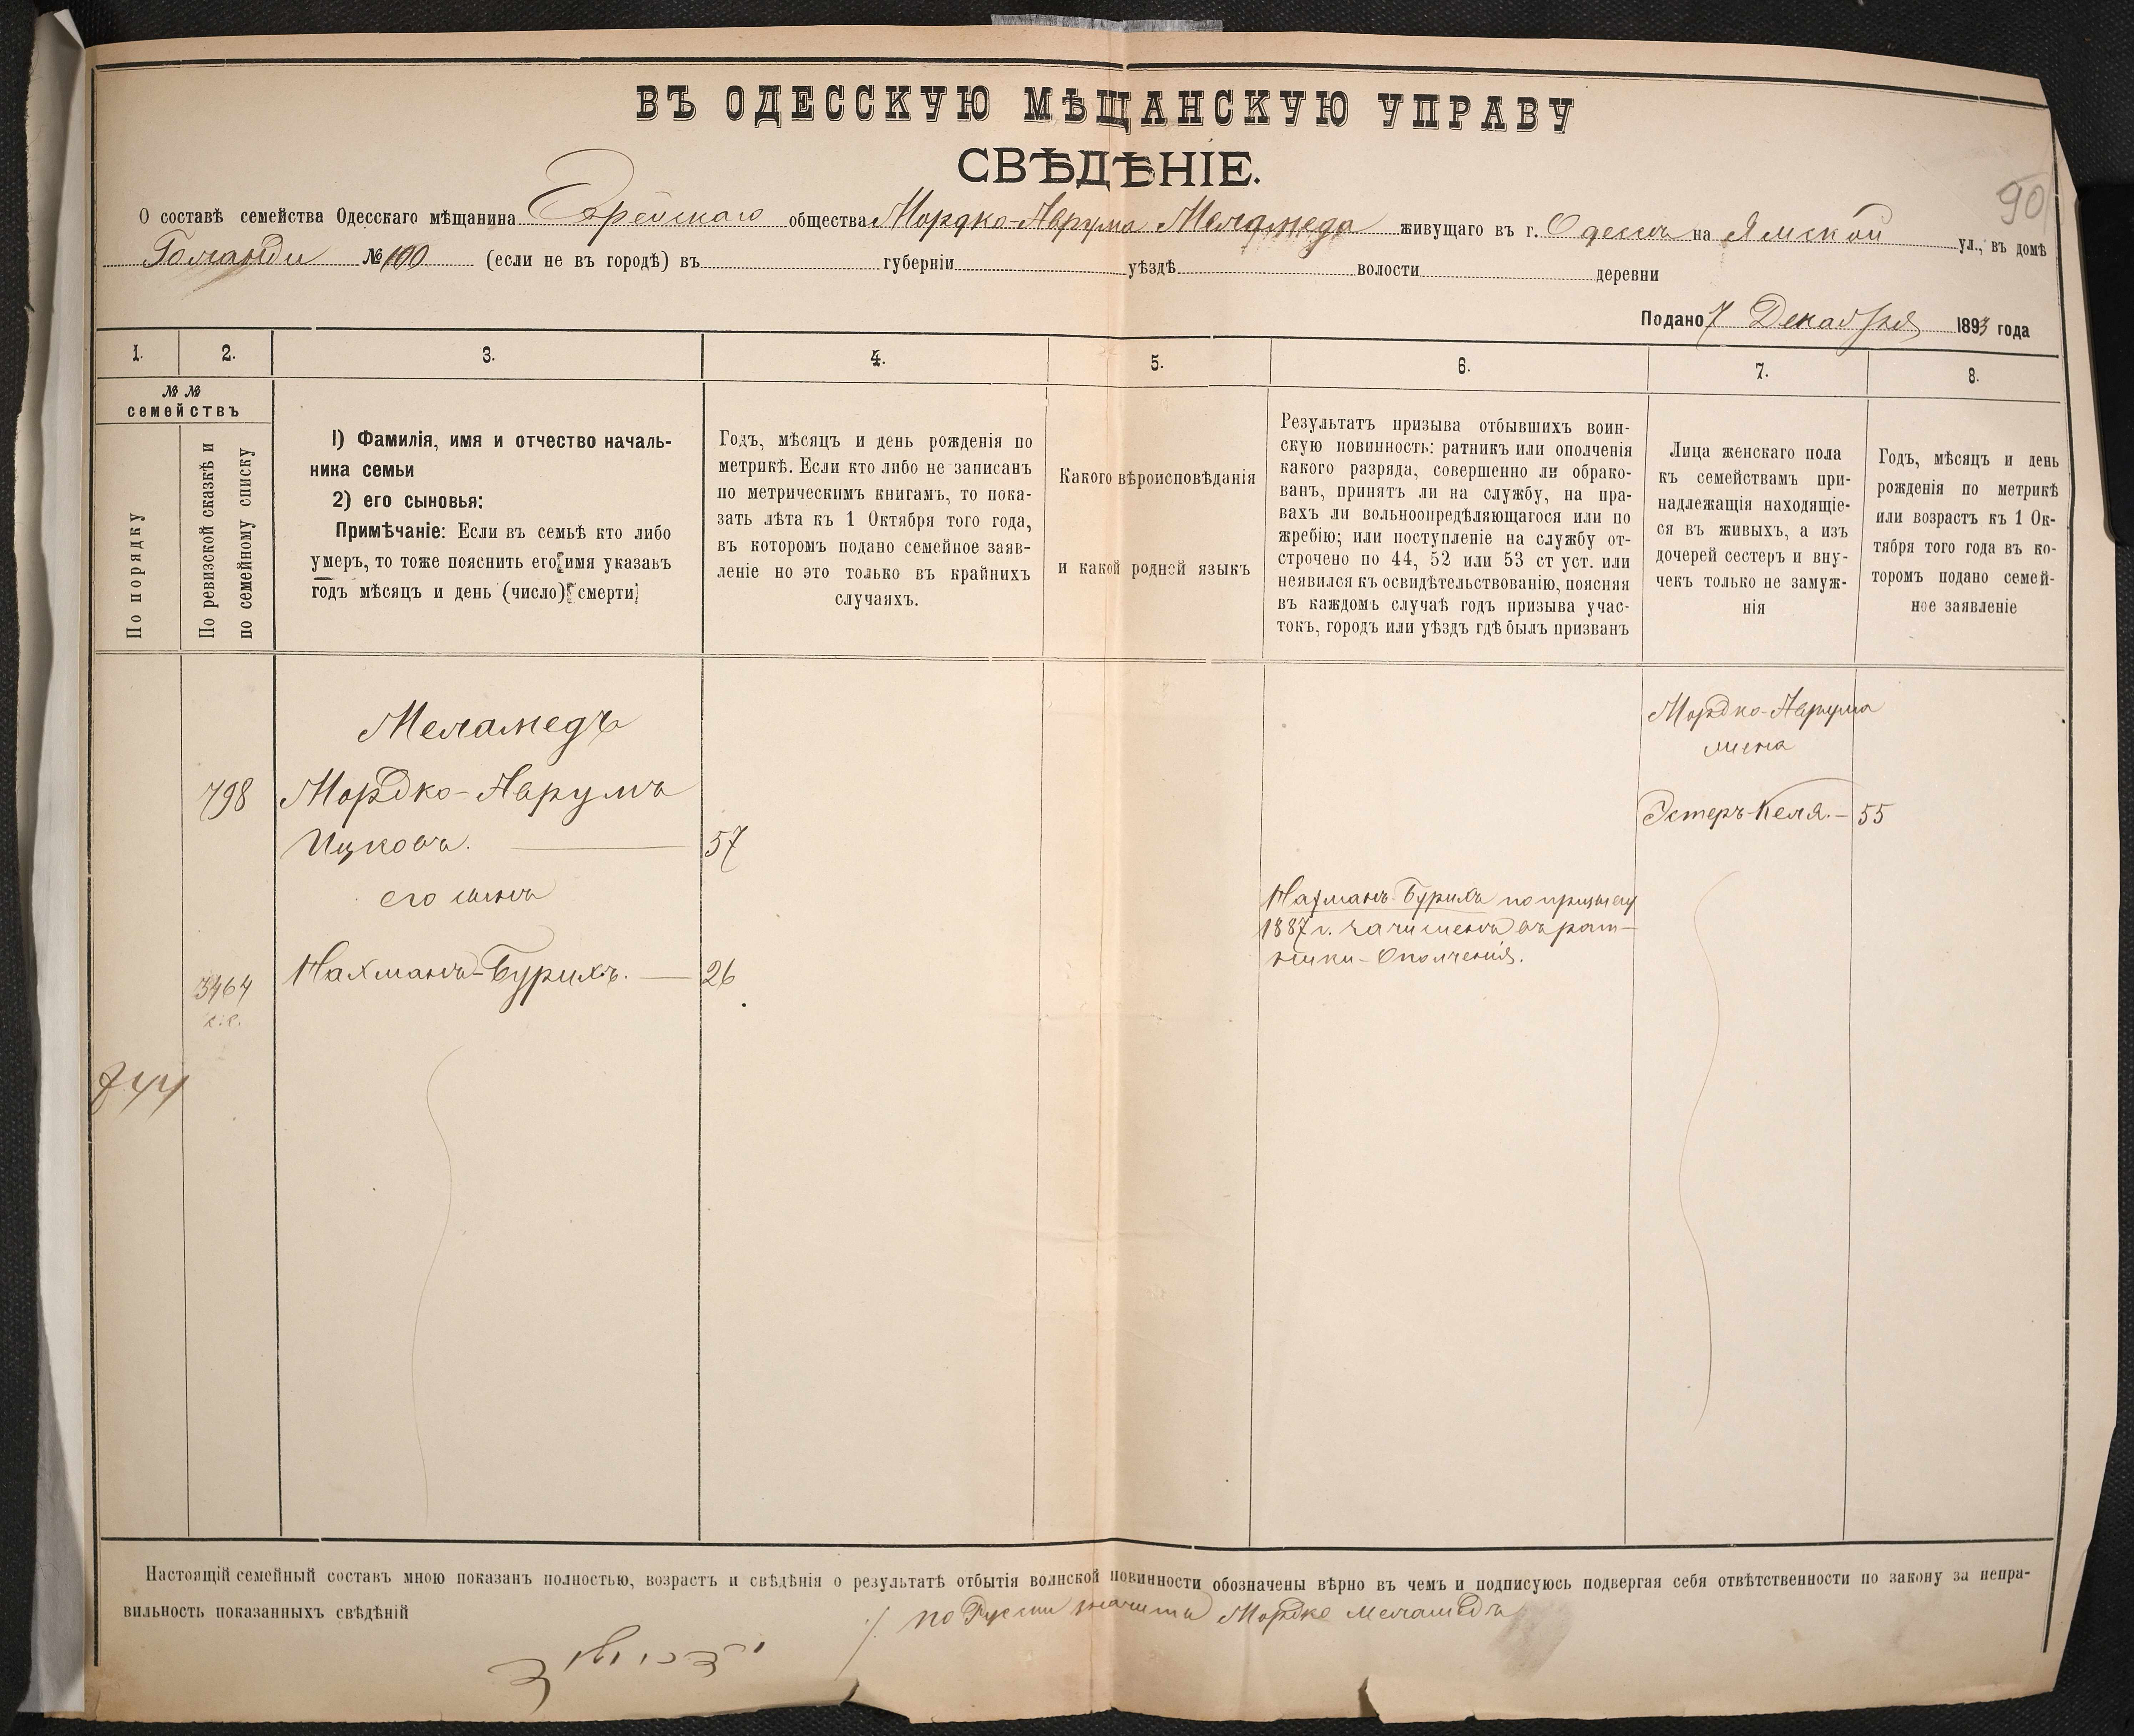 90
ВЪ ОДЕССКУЮ МѢЩАНСКУЮ УПРАВУ
СВѢДѢНІЕ.
О составѣ семейства Одесскаго мѣщанина Еврейскаго общества Мордко-Аврума Меламеда живущаго въ г. Одессѣ на Ямской ул., въ домѣ
№ 100 (если не въ городѣ) въ губерніи уѣздѣ волости деревни
Подано 7 Декабря 1893 года
1. 2. 3. 4. 5. 6. 7. 8.
№ №
семействъ
По порядку
По ревизской сказкѣ и
по семейному списку
1) Фамилія, имя и отчество началь-
ника семьи
2) его сыновья:
Примѣчаніе: Если въ семьѣ кто либо
умеръ, то тоже пояснить его имя указавъ
годъ мѣсяцъ и день (число) смерти
Годъ, мѣсяцъ и день рожденія по
метрикѣ. Если кто либо не записанъ
по метрическимъ книгамъ, то пока-
зать лѣта къ 1 Октября того года,
въ которомъ подано семейное заяв-
леніе но это только въ крайнихъ
случаяхъ.
Какого вѣроисповѣданія
и какой родной языкъ
Результатъ призыва отбывшихъ воин-
скую повинность: ратникъ или ополченія
какого разряда, совершенно ли обрако-
ванъ, принятъ ли на службу, на пра-
вахъ ли вольноопредѣляющагося или по
жребію; или поступленіе на службу от-
строчено по 44, 52 или 53 ст уст. или
неявился къ освидѣтельствованію, поясняя
въ каждомъ случаѣ годъ призыва учас-
токъ, городъ или уѣздъ гдѣ былъ призванъ
Лица женскаго пола
къ семействамъ при-
надлежащія находящіе-
ся въ живыхъ, а изъ
дочерей сестеръ и вну-
чекъ только не замуж-
нія
Годъ, мѣсяцъ и день
рожденія по метрикѣ
или возрастъ къ 1 Ок-
тября того года въ ко-
торомъ подано семей-
ное заявленіе
Меламедъ
798 Мордко-Аврумъ
Ицковъ. — 57
его сынъ
3464 Нахманъ-Бурихъ. — 26
Нахманъ-Бурихъ по призыву
1887 г. зачисленъ въ рат-
ники-Ополченія.
Мордко-Аврума
жена
Эстеръ-Келя. — 55
Настоящій семейный составъ мною показанъ полностью, возрастъ и свѣдѣнія о результатѣ отбытія воинской повинности обозначены вѣрно въ чемъ и подписуюсь подвергая себя отвѣтственности по закону за непра-
вильность показанныхъ свѣдѣній
по Русски значитъ Мордко Меламедъ